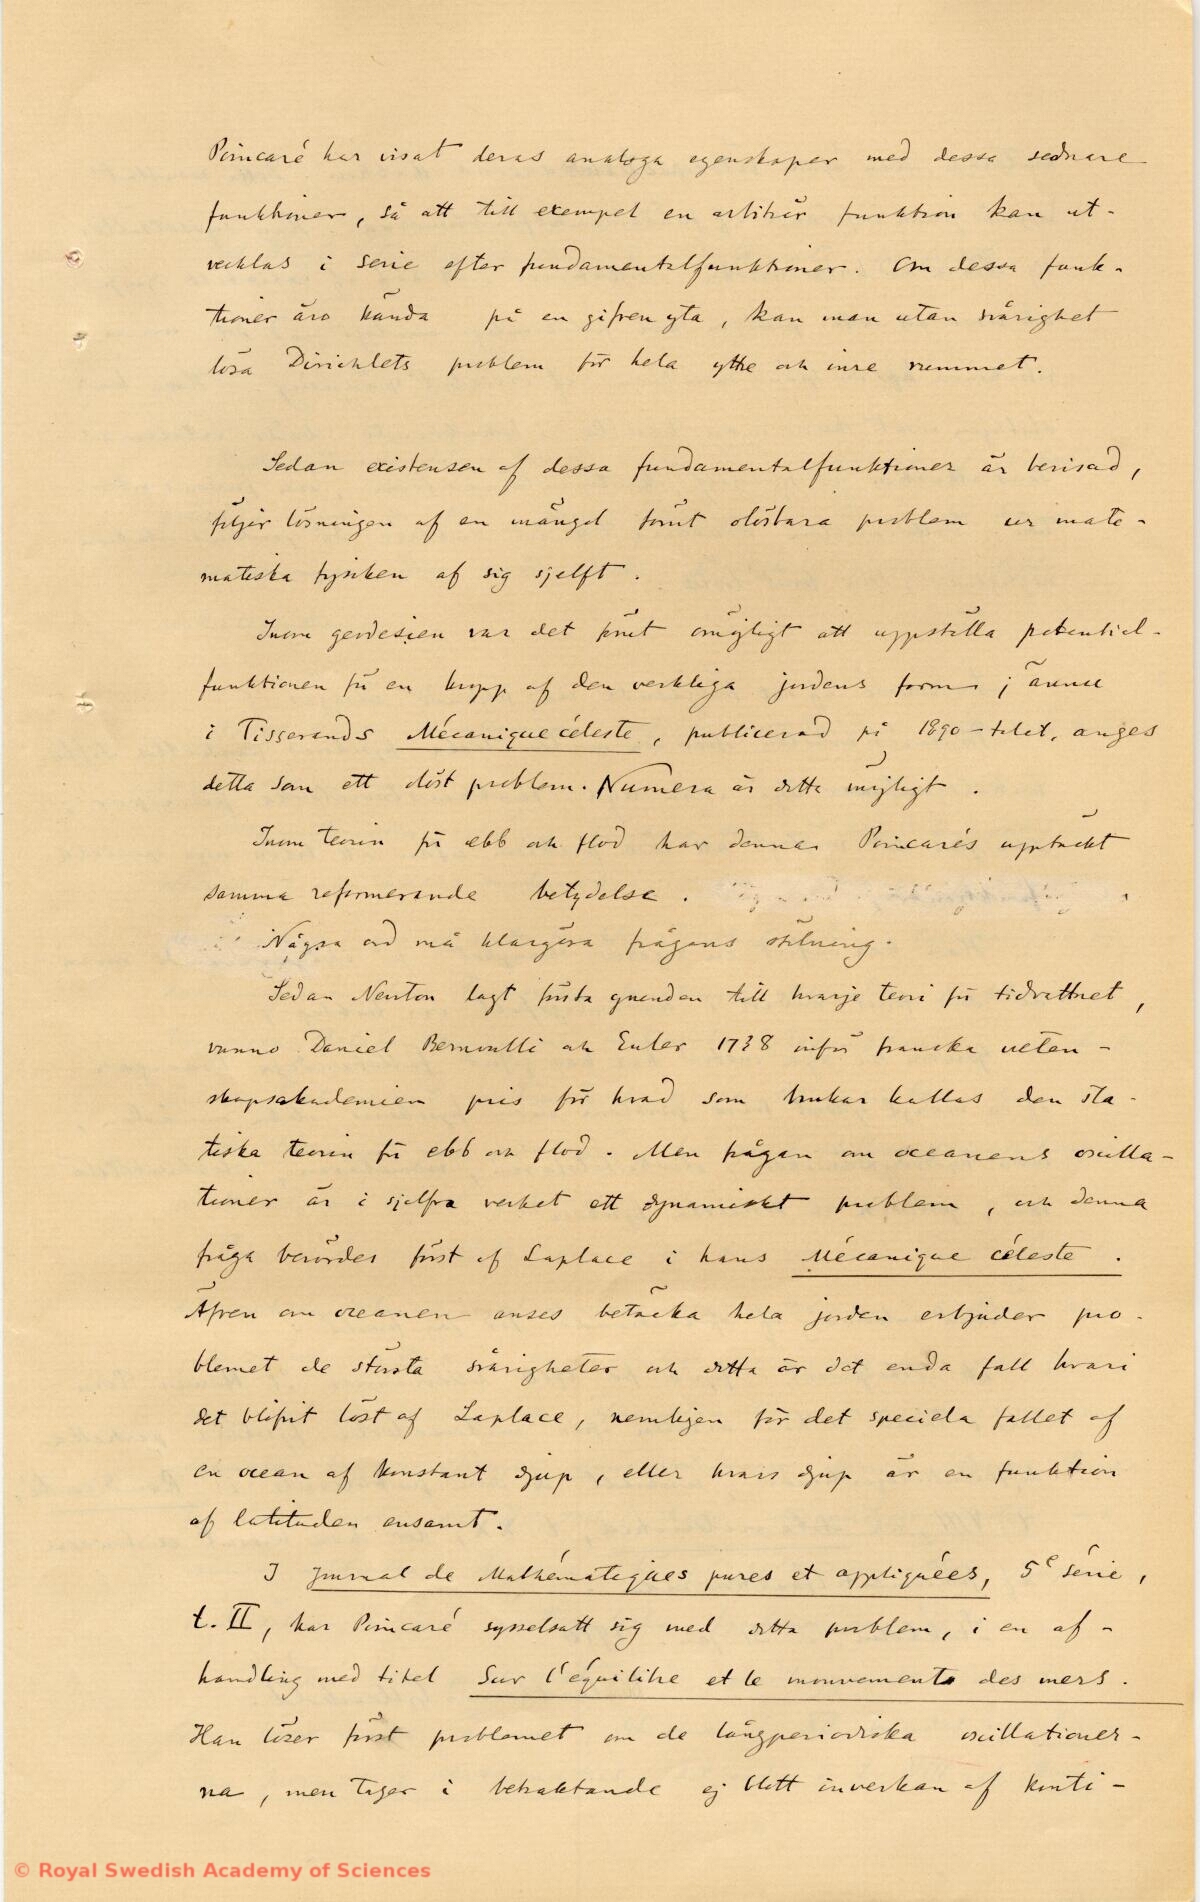 Poincaré har visat deras analoga egenskaper med dessa sednare
funktioner, så att till exempel en arbiträr funktion kan ut-
vecklas i serie efter fundamentalfunktioner. Om dessa funk-
tioner äro kända på en gifven yta, kan man utan svårighet
lösa Dirichlets problem för hela yttre och inre rummet.
Sedan existensen af dessa fundamentalfunktioner är bevisad,
följer lösningen af en mängd förut olösbara problem ur mate-
matiska fysiken af sig sjelft.
Inom geodesien var det förut omöjligt att uppställa potential-
funktionen för en kropp af den verkliga jordens form; ännu
i Tisserands Mécanique céleste, publicerad på 1890-talet, anges
detta som ett olöst problem. Numera är detta möjligt.
Inom teorin för ebb och flod har denna Poincarés upptäckt
samma reformerande betydelse.
Några ord må klargöra frågans ställning.
Sedan Newton lagt första grunden till hvarje teori för tidvattnet,
vunno Daniel Bernoulli och Euler 1738 inför franska veten-
skapsakademien pris för hvad som brukar kallas den sta-
tiska teorin för ebb och flod. Men frågan om oceanens oscilla-
tioner är i sjelfva verket ett dynamiskt problem, och denna
fråga berördes först af Laplace i hans Mécanique céleste.
Äfven om oceanen anses betäcka hela jorden erbjuder pro-
blemet de största svårigheter och detta är det enda fall hvari
det blifvit löst af Laplace, nemligen för det speciela fallet af
en ocean af konstant djup, eller hvars djup är en funktion
af latituden ensamt.
I Journal de Mathématiques pures et appliquées, 5e série,
t. II, har Poincaré sysselsatt sig med detta problem, i en af-
handling med titel Sur l'équilibre et le mouvement des mers.
Han löser först problemet om de långperiodiska oscillationer-
na, men tager i betraktande ej blott inverkan af konti-
© Royal Swedish Academy of Sciences